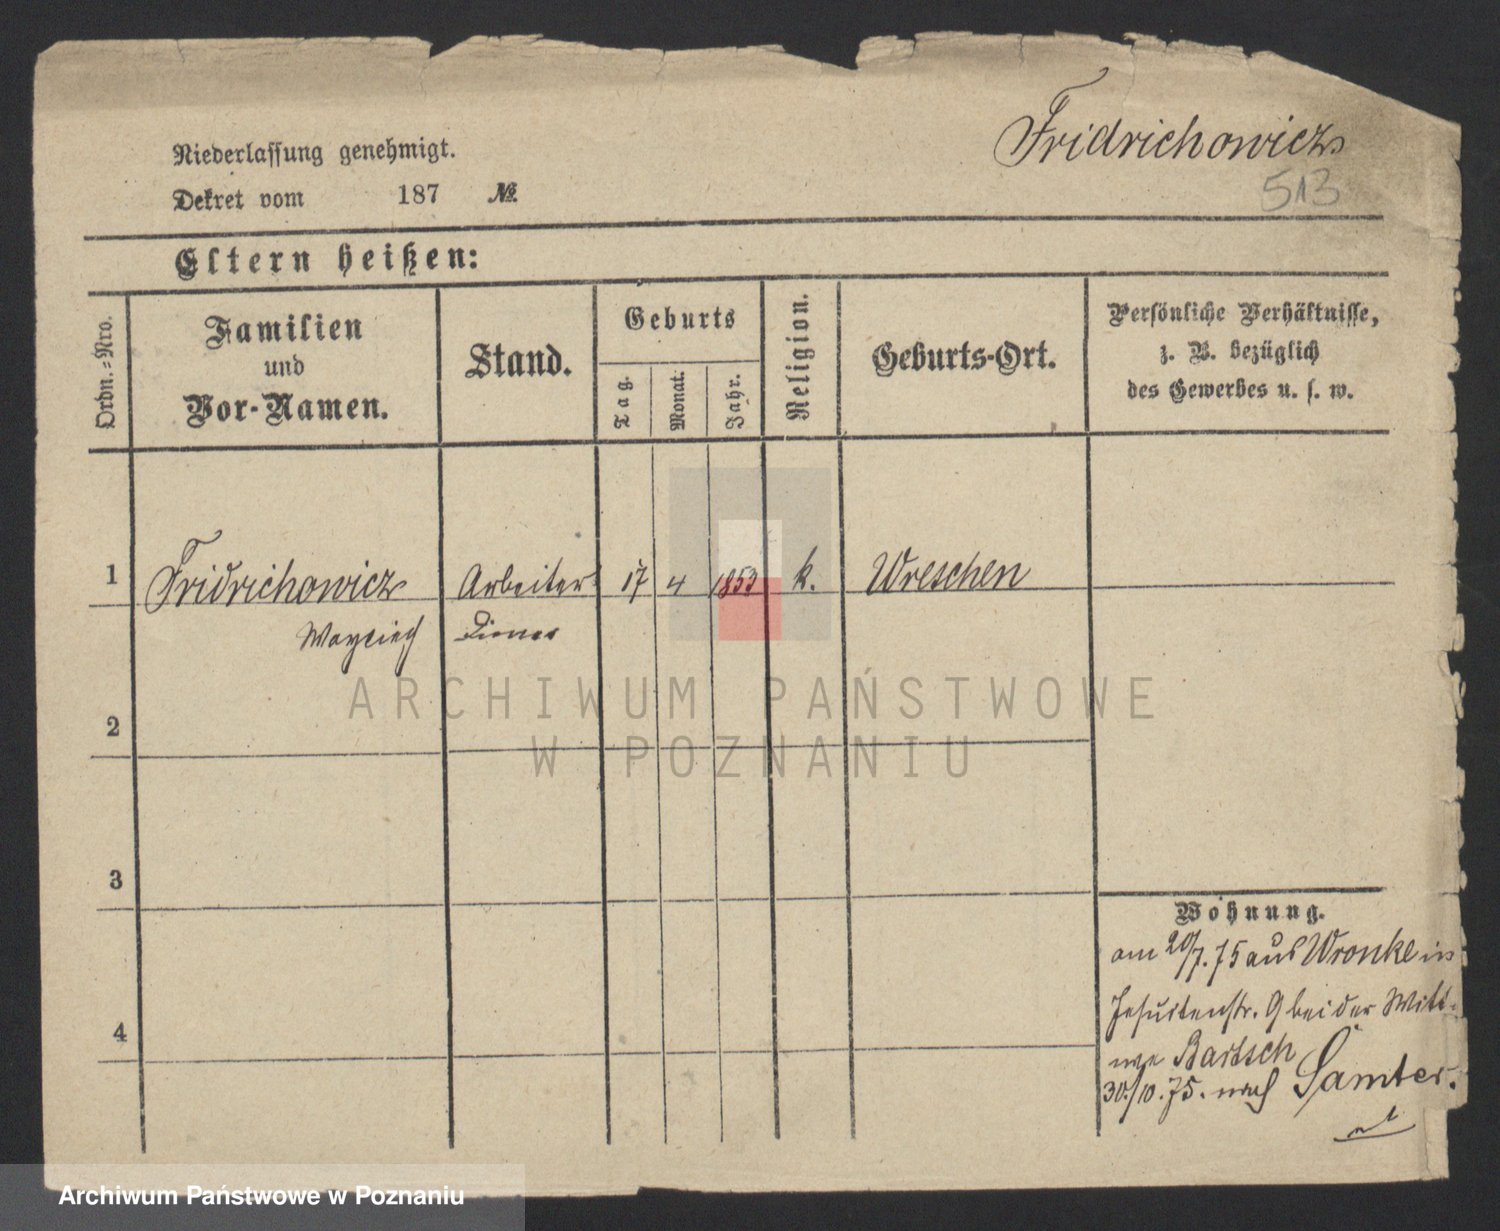 Fridrichowicz
513
Niederlassung genehmigt.
Dekret vom 187 №
Eltern heißen:
Ordn.-Nro.
Familien
und
Vor-Namen.
Stand.
Geburts
Tag.
Monat.
Jahr.
Religion.
Geburts-Ort.
Persönliche Verhältnisse,
z. B. bezüglich
des Gewerbes u. s. w.
1 Fridrichowicz Arbeiter 17 4 1853 k. Wreschen
Wayciech Diener
2
3
4
Wohnung.
am 20/7. 75 aus Wronke in
Jesuitenstr. 9 bei der Witt-
we Bartsch
30./10. 75. nach Samter.
ARCHIWUM PAŃSTWOWE
W POZNANIU
Archiwum Państwowe w Poznaniu